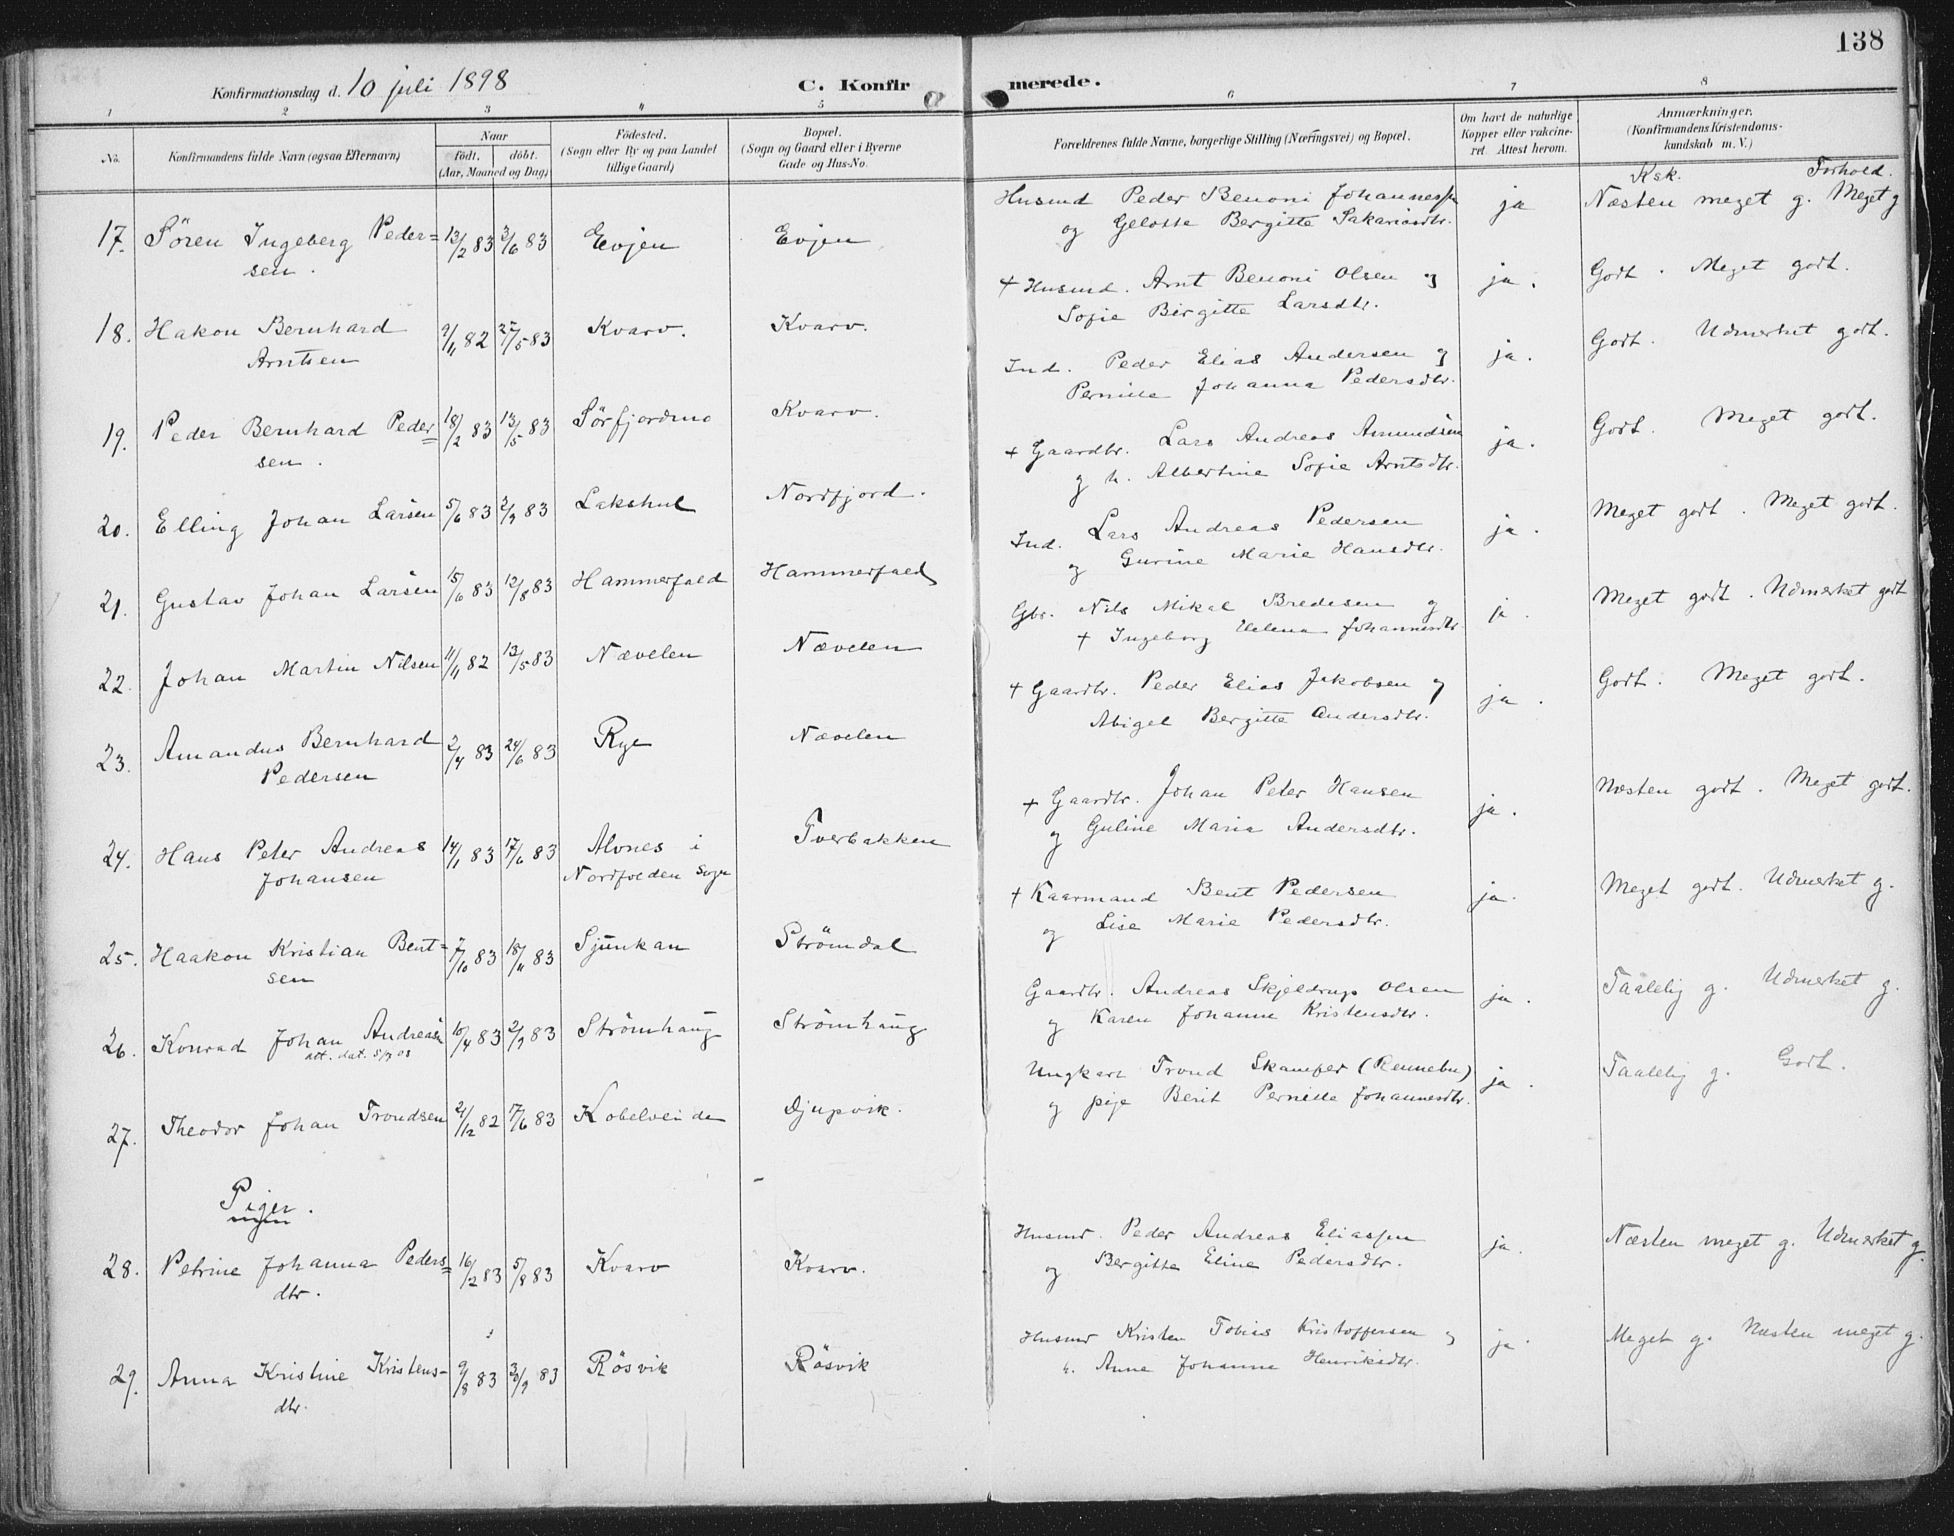 138
Konfirmationsdag d. 10 juli 1898 C. Konfirmerede.
1 2 3 4 5 6 7 8
No. Konfirmandens fulde Navn (ogsaa Efternavn) Naar født. døbt. (Aar, Maaned og Dag) Fødested. (Sogn eller By og paa Landet tillige Gaard) Bopæl. (Sogn og Gaard eller i Byerne Gade og Hus-No. Forældrenes fulde Navne, borgerlige Stilling (Næringsvei) og Bopæl. Om havt de naturlige Kopper eller vakcineret. Attest herom. Anmærkninger. (Konfirmandens Kristendomskundskab m. V.)
Ksk. Forhold.
17. Sören Ingeberg Peder= 13/2 83 3/6 83 Evjen Evjen Husmd Peder Benoni Johannessen ja Næsten meget g. Meget g
sen. og Gelotte Bergitte Sakariasdtr.
18. Hakon Bernhard 9/11 82 27/5 83 Kvarv. Kvarv. + Husmd. Arnt Benoni Olsen og ja. Godt. Meget godt.
Arntsen Sofie Birgitte Larsdtr.
19. Peder Bernhard Peder= 18/2 83 13/5 83 Sörfjordmo Kvarv. Ind. Peder Elias Andersen og ja. Godt. Udmerket godt.
sen. Pernille Johanna Pedersdtr.
20. Elling Johan Larsen 5/6 83 2/9 83 Lakshul Nordfjord. + Gaardbr. Lars Andreas Amundsen ja. Godt. Meget godt.
og h. Albertine Sofie Arntsdtr.
21. Gustav Johan Larsen 15/6 83 12/8 83 Hammerfald Hammerfald Ind. Lars Andreas Pedersen ja. Meget godt. Meget godt.
og Gurine Marie Hansdtr.
22. Johan Martin Nilsen 11/11 82 13/5 83 Nævelen Nævelen Gbr. Nils Mikal Bredesen og ja. Meget godt. Udmerket godt
+ Ingeborg Helena Johannesdtr
23. Amandus Bernhard 2/4 83 24/6 83 Rye Nævelen + Gaardbr. Peder Elias Jakobsen og ja. Godt. Meget godt.
Pedersen Abigel Bergitte Andersdtr.
24. Hans Peter Andreas 14/1 83 17/6 83 Alvnes i Tverbakken + Gaardbr. Johan Peter Hansen ja. Næsten godt. Meget godt.
Johansen Nordfolden Sogn og Guline Maria Andersdtr.
25. Haakon Kristian Bent= 7/10 83 18/11 83 Sjunkan Strömdal + Kaarmand Bent Pedersen ja. Meget godt. Udmerket g.
sen og Lise Marie Pedersdtr.
26. Konrad Johan Andreasen 10/4 83 2/9 83 Strömhaug Strömhaug Gaardbr. Andreas Skjeldrup Olsen ja. Taalelig g. Udmerket g.
att. dat. 5/9 08 og Karen Johanne Kristensdtr.
27. Theodor Johan Trondsen 21/12 82 17/6 83 Kobelveide Djupvik. Ungkarl Trond Skamfer (Rennebu) ja. Taalelig g. Godt.
og pige Berit Pernille Johannesdtr.
Piger.
28. Petrine Johanna Peders= 16/2 83 5/8 83 Kvarv Kvarv. Husmd. Peder Andreas Eliassen ja. Næsten meget g. Udmerket g.
dtr. og Bergitte Eline Pedersdtr.
29. Anna Kristine Kristens- 9/8 83 3/9 83 Rösvik Rösvik Husmd Kristen Tobias Kristoffersen og ja. Meget g. Næsten meget g.
dtr. h. Anne Johanne Henriksdtr.